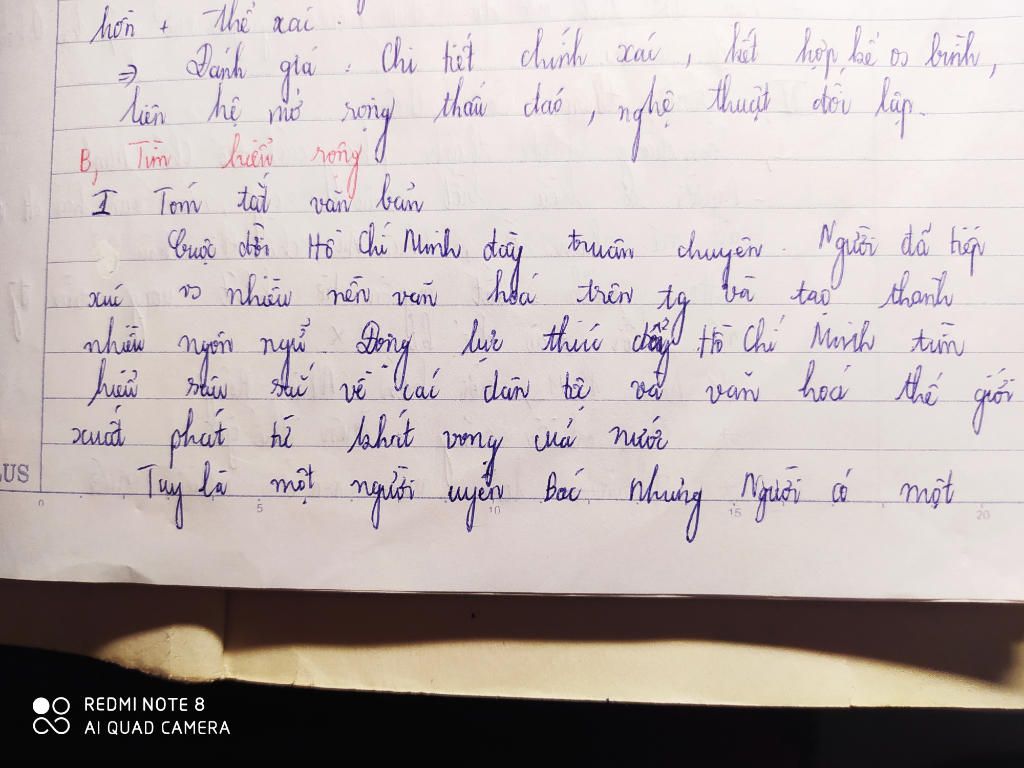 hồn + thể xác.
=> Đánh giá: Chi tiết chính xác, kết hợp kể vs bình,
liên hệ mở rộng thấu đáo, nghệ thuật đối lập.
B, Tìm hiểu rộng
I Tóm tắt văn bản
Cuộc đời Hồ Chí Minh đầy truân chuyên. Người đã tiếp
xúc vs nhiều nền văn hoá trên tg và tạo thành
nhiều ngôn ngữ. Động lực thúc đẩy Hồ Chí Minh tìm
hiểu sâu sắc về các dân tộc và văn hoá thế giới
xuất phát từ khát vọng cứu nước
Tuy là một người uyên bác nhưng Người có một
LUS
0 5 10 15 20
REDMI NOTE 8
AI QUAD CAMERA